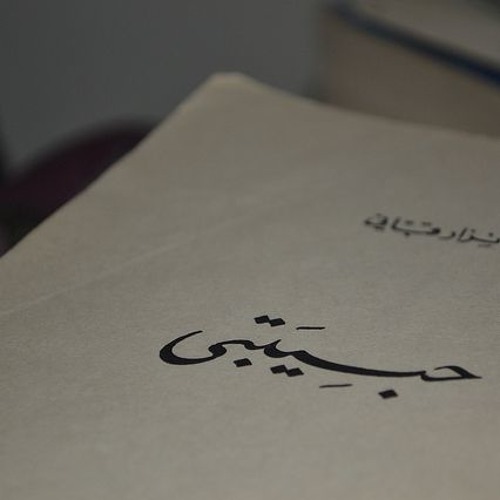 نزار قباني
حبيبتي